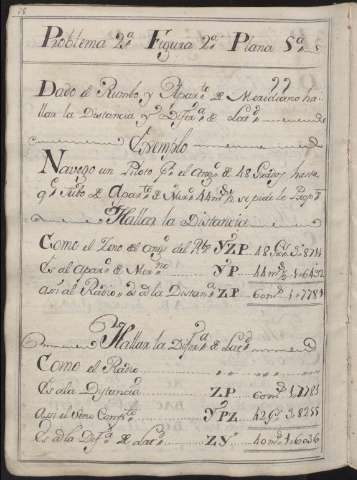 Problema 2ª Figura 2ª Plana 5ª
Dado el Rumbo, y Apartº de Meridiano ha
llar la Distancia, y Difrª de Latº
Exemplo
Navego un Piloto pr el de 48 hasta
qe de Aparº de Merº 44 ms se pide lo Propº
Hallar la Distancia
Como el Seno del ang del Rbo YZP 48 Gs 3,8711
Es al Aparº de Merº YP 44 ms 1,6432
Asi al Radio es a la Distanª ZP 60 ms 1,7781
Hallar la Difrª de Latº
Como el Radio
Es a la Distancia ZP 60 ms 1,7781
Asi el Seno Compº YPZ 42 Gs 3,8255
Es a la Difª de Latº ZY 40 ms 1,6036